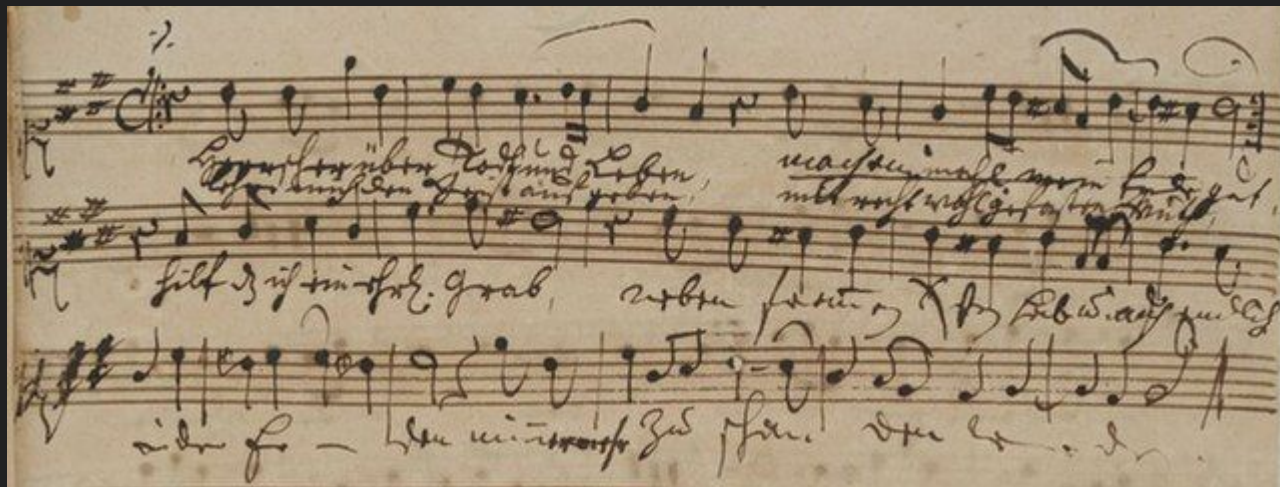 Herrscher über Todt und Leben, mach einmahl mein Ende gut,
lehre mich den Geist aufgeben, mit recht wohlgefasten Muth,
hilf dz ich ein ehrl. Grab, neben from̄en Xsten hab u. auch endlich
in der Er - den nim̄ermehr zu schan den